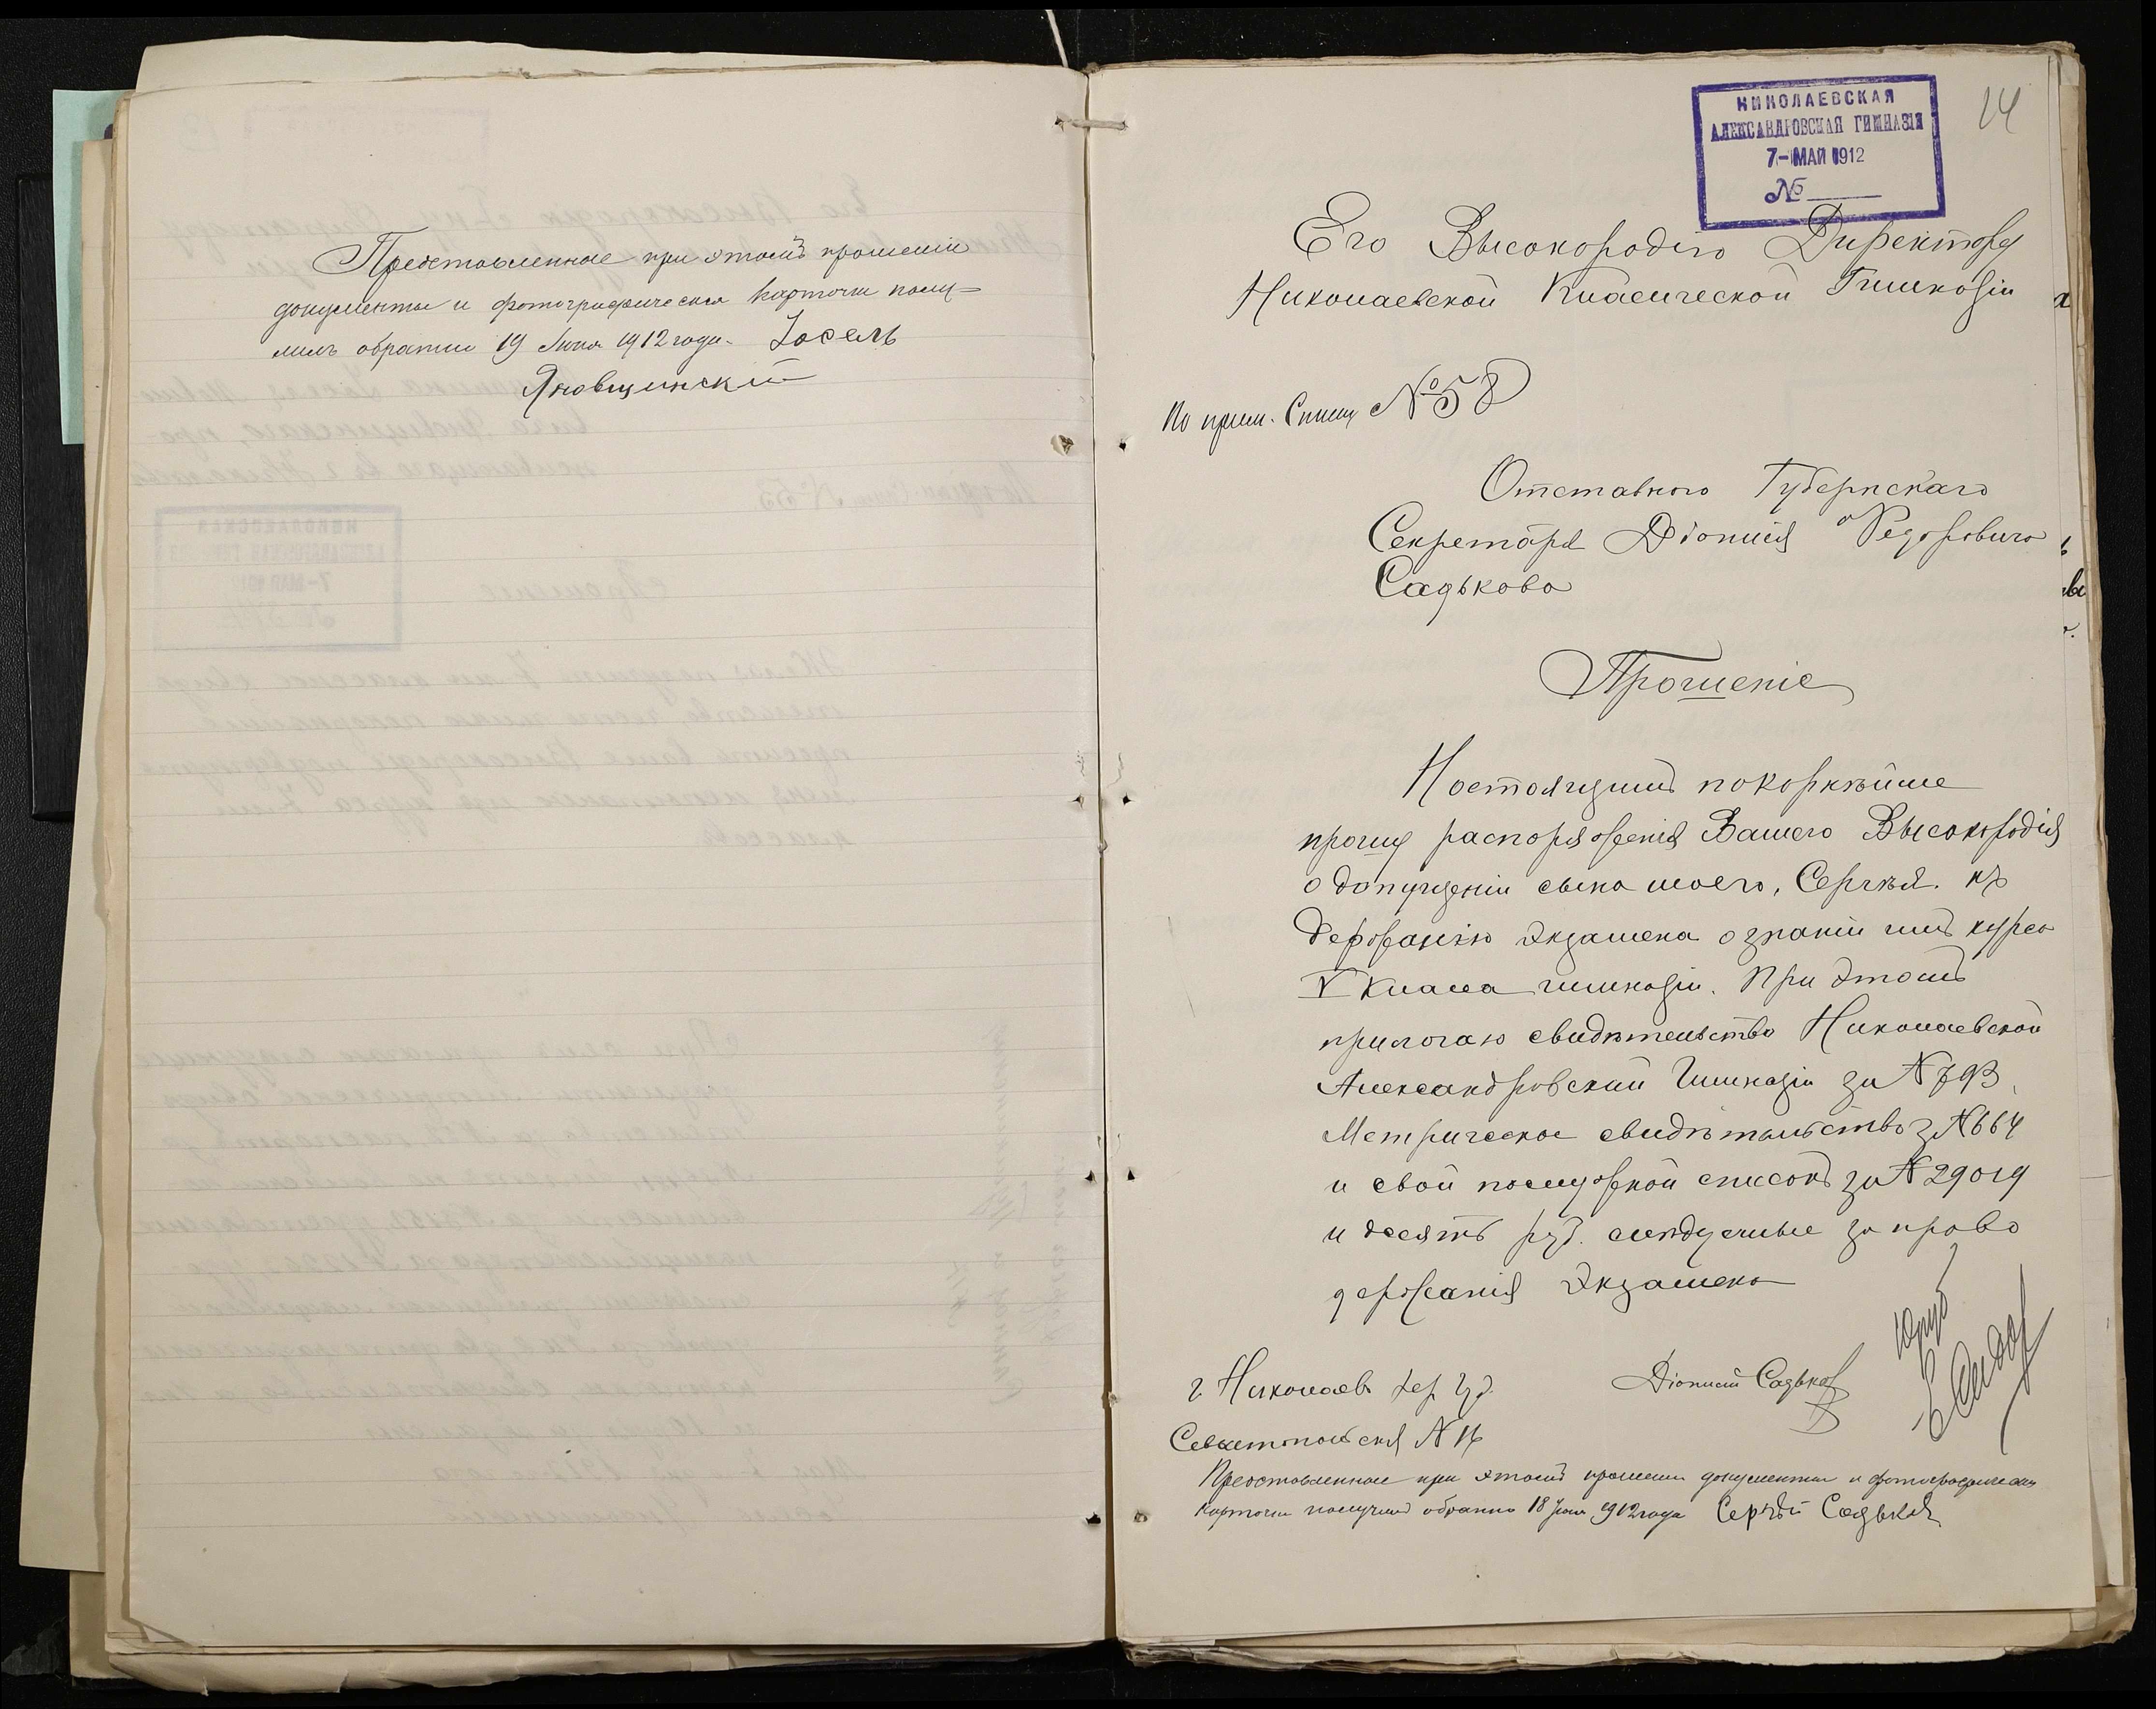 Представленные при этомъ прошеніи
документы и фотографическія карточки полу-
чилъ обратно 19 Іюня 1912 года. Іосель
Яновщинскій
НИКОЛАЕВСКАЯ
АЛЕКСАНДРОВСКАЯ ГИМНАЗІЯ
7-МАЙ 1912
№
14
Его Высокородію Директору
Николаевской Класической Гимназіи
По прим. Списку №58
Отставного Губернскаго
Секретаря Діонисія Федоровича
Садькова
Прошеніе
Настоящимъ покорнѣйше
прошу распоряженія Вашего Высокородія
о допущеніи сына моего, Сергѣя. къ
держанію экзамена о знаніи имъ курса
V класса гимназіи. При этомъ
прилагаю свидѣтельство Николаевской
Александровской Гимназіи за №793,
Метрическое свидѣтельство з №664
и свой послужной списокъ за №29019
и десять руб. слѣдуемые за право
держанія экзамена
г. Николаевъ Хер губ.
Діонисій Садьков
Севастопольская №16
Представленные при этомъ прошеніи документы и фотографическія
карточки получилъ обратно 18 Іюня 1912 года Сергѣй Садьков